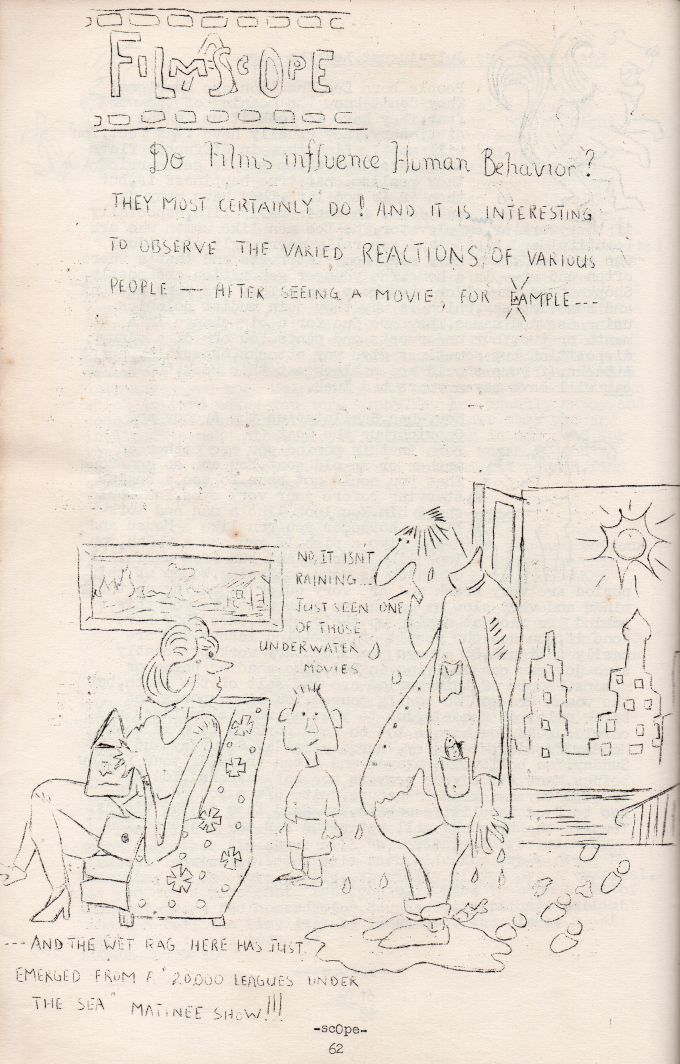 FILM-A-SCOPE
Do Films influence Human Behavior?
THEY MOST CERTAINLY DO! AND IT IS INTERESTING
TO OBSERVE THE VARIED REACTIONS OF VARIOUS
PEOPLE — AFTER SEEING A MOVIE, FOR EAMPLE---
NO, IT ISN'T
RAINING...
JUST SEEN ONE
OF THOSE
UNDERWATER
MOVIES
---AND THE WET RAG HERE HAS JUST
EMERGED FROM A "20.000 LEAGUES UNDER
THE SEA" MATINEE SHOW!!!
-scOpe-
62